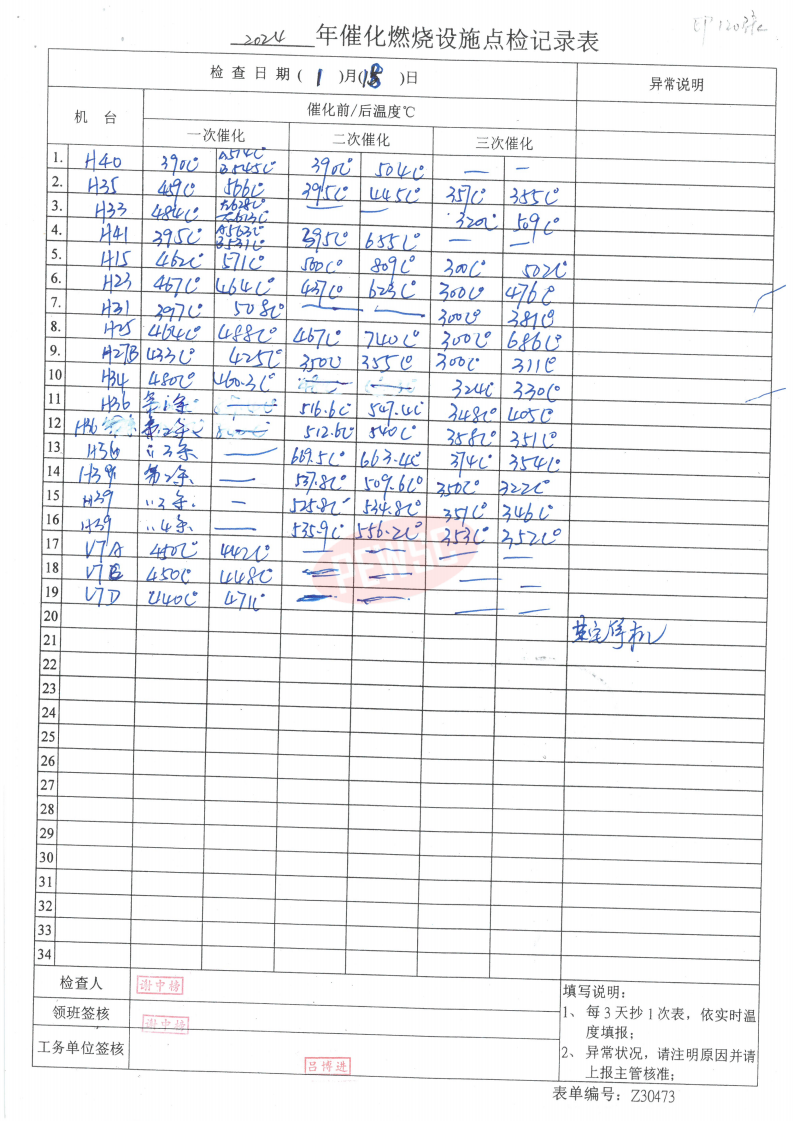 2024 年催化燃烧设施点检记录表
检查日期( 1 )月(18 )日 异常说明
机 台 催化前/后温度℃
一次催化 二次催化 三次催化
1. H40 390℃ A514℃ B545℃ 390℃ 504℃ — —
2. H35 459℃ 566℃ 395℃ 445℃ 357℃ 355℃
3. H33 484℃ — — 320℃ 509℃
4. H41 395℃ A563℃ B531℃ 395℃ 655℃ — —
5. H15 462℃ 571℃ 500℃ 809℃ 300℃ 502℃
6. H23 467℃ 464℃ 437℃ 623℃ 300℃ 476℃
7. H31 397℃ 508℃ — — 300℃ 381℃
8. H25 464℃ 488℃ 467℃ 740℃ 300℃ 686℃
9. H27B 433℃ 425℃ 350℃ 355℃ 300℃ 311℃
10 H34 480℃ 460.3℃ 324℃ 330℃
11 H36 — 516.6℃ 547.4℃ 348℃ 405℃
12 H36 第2条 512.6℃ 540℃ 358℃ 351℃
13 H36 〃3条 — 669.5℃ 663.4℃ 374℃ 354℃
14 H39 第2条 — 537.8℃ 509.6℃ 350℃ 322℃
15 H39 〃3条 — 525.8℃ 534.8℃ 351℃ 346℃
16 H39 〃4条 — 535.9℃ 556.2℃ 353℃ 352℃
17 V7A 450℃ 442℃ — — — —
18 V7B 450℃ 448℃ — — — —
19 V7D 440℃ 471℃ — — — —
20
21
22
23
24
25
26
27
28
29
30
31
32
33
34
检查人 谢中榜
领班签核 谢中榜
工务单位签核 吕博进
填写说明:
1、 每 3 天抄 1 次表，依实时温
度填报;
2、 异常状况，请注明原因并请
上报主管核准;
表单编号: Z30473